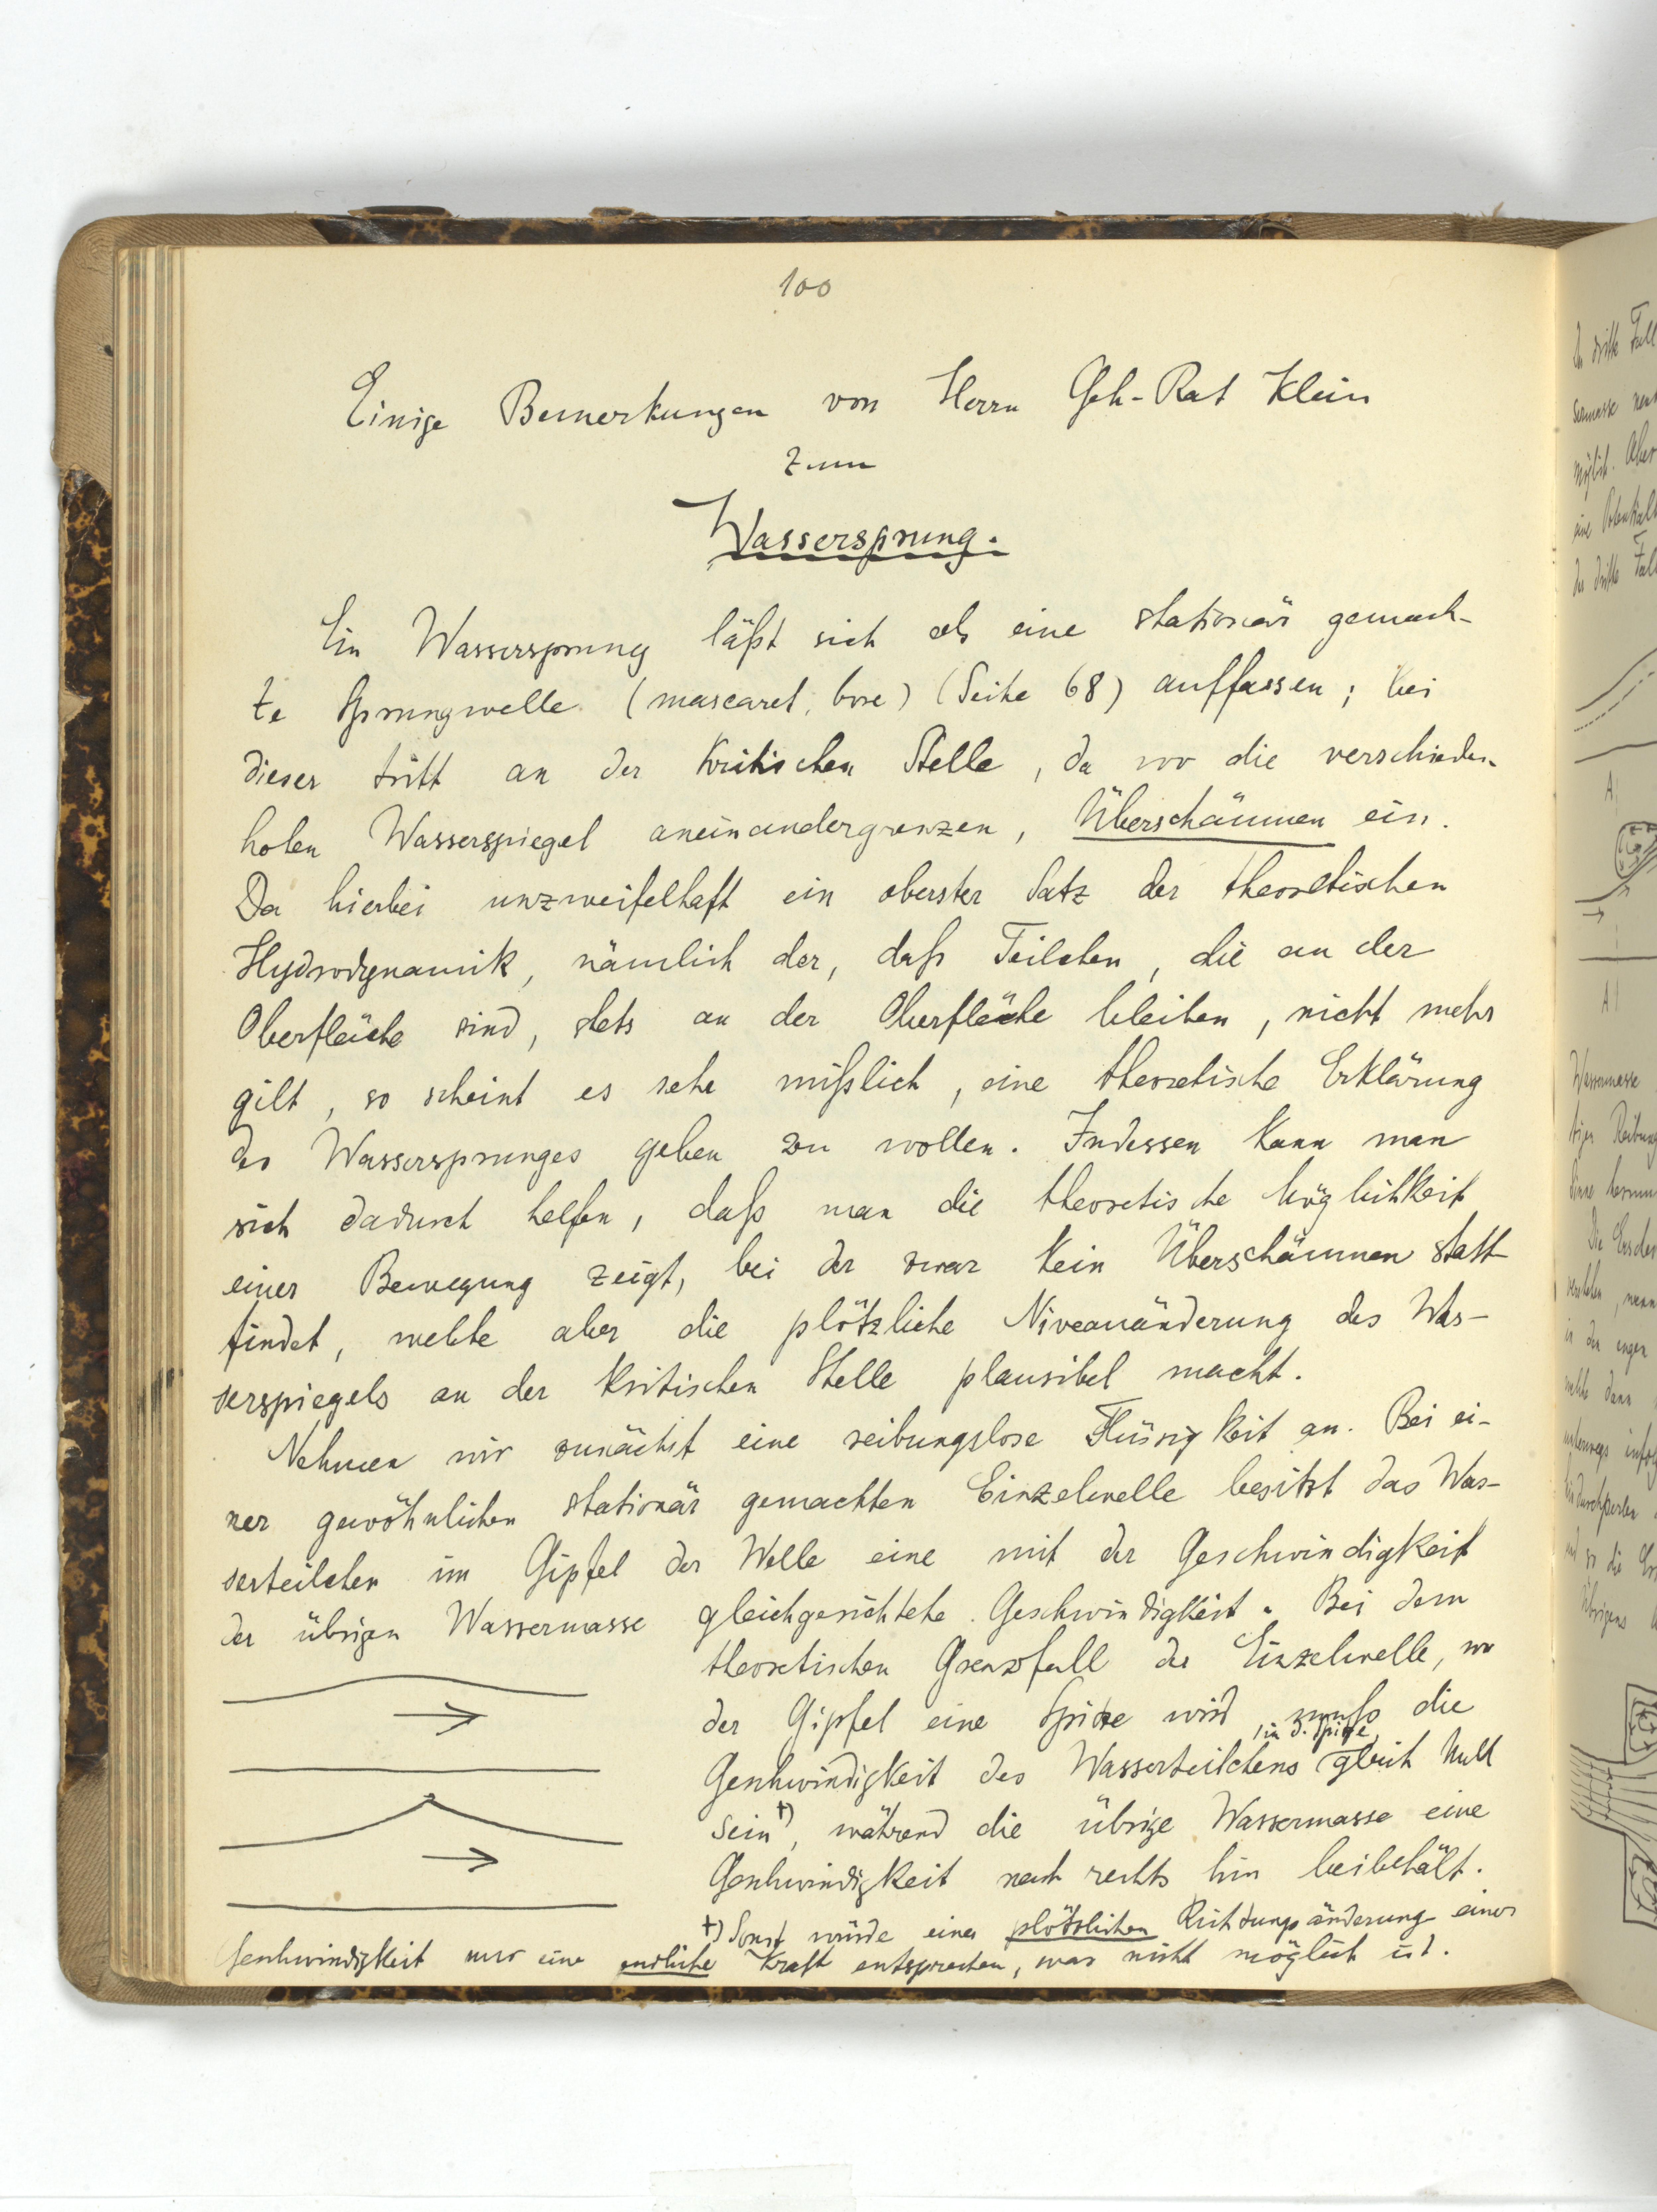 100
Einige Bemerkungen von Herrn Geh-Rat Klein
zum
Wassersprung.
Ein Wassersprung läßt sich als eine stationär gemach-
te Sprungwelle (mascaret, bore) (Seite 68) auffassen; bei
dieser tritt an der kritischen Stelle, da wo die verschieden
hohen Wasserspiegel aneinandergrenzen, Überschäumen ein.
Da hierbei unzweifelhaft ein oberster Satz der theoretischen
Hydrodynamik, nämlich der, daß Teilchen, die an der
Oberfläche sind, stets an der Oberfläche bleiben, nicht mehr
gilt, so scheint es sehr mißlich, eine theoretische Erklärung
des Wassersprunges geben zu wollen. Indessen kann man
sich dadurch helfen, daß man die theoretische Möglichkeit
einer Bewegung zeigt, bei der zwar kein Überschäumen statt
findet, welche aber die plötzliche Niveauänderung des Was-
serspiegels an der kritischen Stelle plausibel macht.
Nehmen wir zunächst eine reibungslose Flüssigkeit an. Bei ei-
ner gewöhnlichen stationär gemachten Einzelwelle besitzt das Was-
serteilchen im Gipfel der Welle eine mit der Geschwindigkeit
der übrigen Wassermasse gleichgerichtete Geschwindigkeit. Bei dem
theoretischen Grenzfall der Einzelwelle, wo
der Gipfel eine Spitze wird, muß die
Geschwindigkeit des Wasserteilchens in d. Spitze gleich Null
sein †), während die übrige Wassermasse eine
Geschwindigkeit nach rechts hin beibehält.
†) Sonst würde einer plötzlichen Richtungsänderung einer
Geschwindigkeit nur eine endliche Kraft entsprechen, was nicht möglich ist.